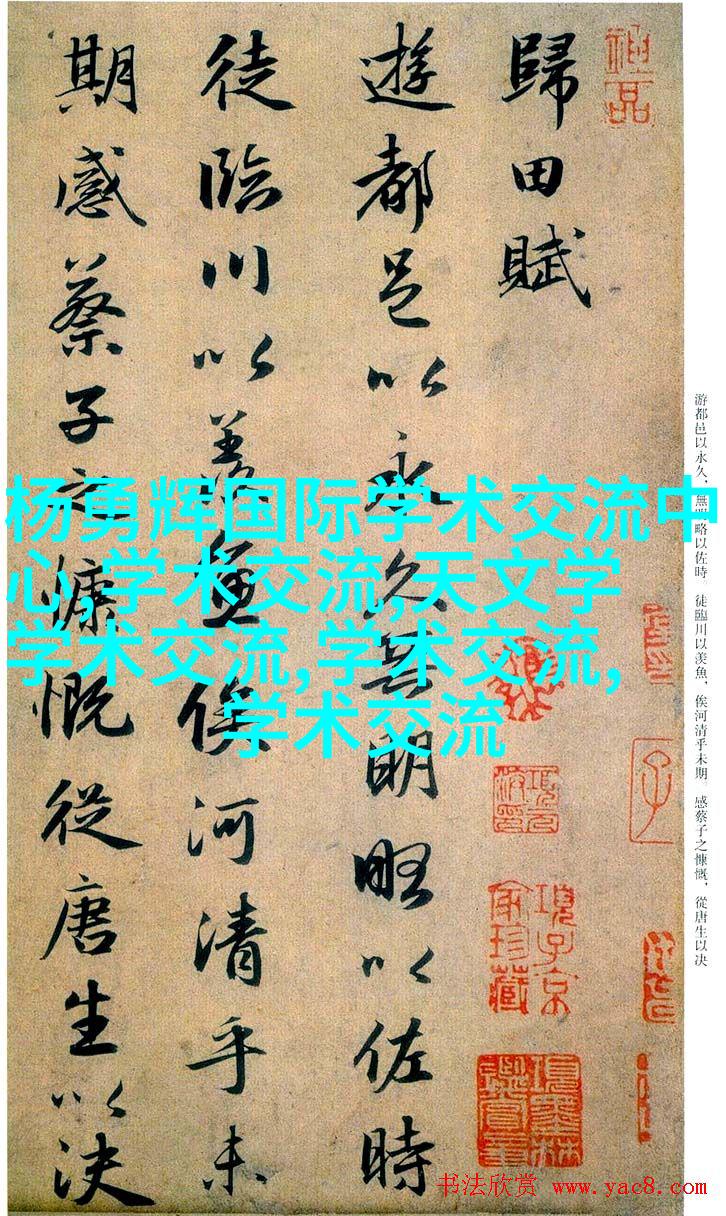 歸田賦
遊都邑以永久無明略以佐時
徒臨川以羨魚俟河清乎未
期感蔡子之慷慨從唐生以決
游都邑以永久，無明略以佐時　徒臨川以羨魚，俟河清乎未期。感蔡子之慷慨，從唐生以決
杨勇辉国际学术交流中
心,学术交流,天文学
学术交流,学术交流,
学术交流
項子京
家珍藏
项墨林
鑑賞章
书法欣赏 www.yac8.com